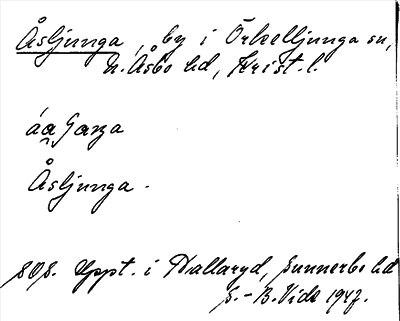 Åsljunga, by i Örkelljunga sn,
N. Åsbo hd, Krist. l.
Åsljunga.
SOS. Uppt. i Hallaryd, Sunnerbo hd
S.-B. Vide 1947.